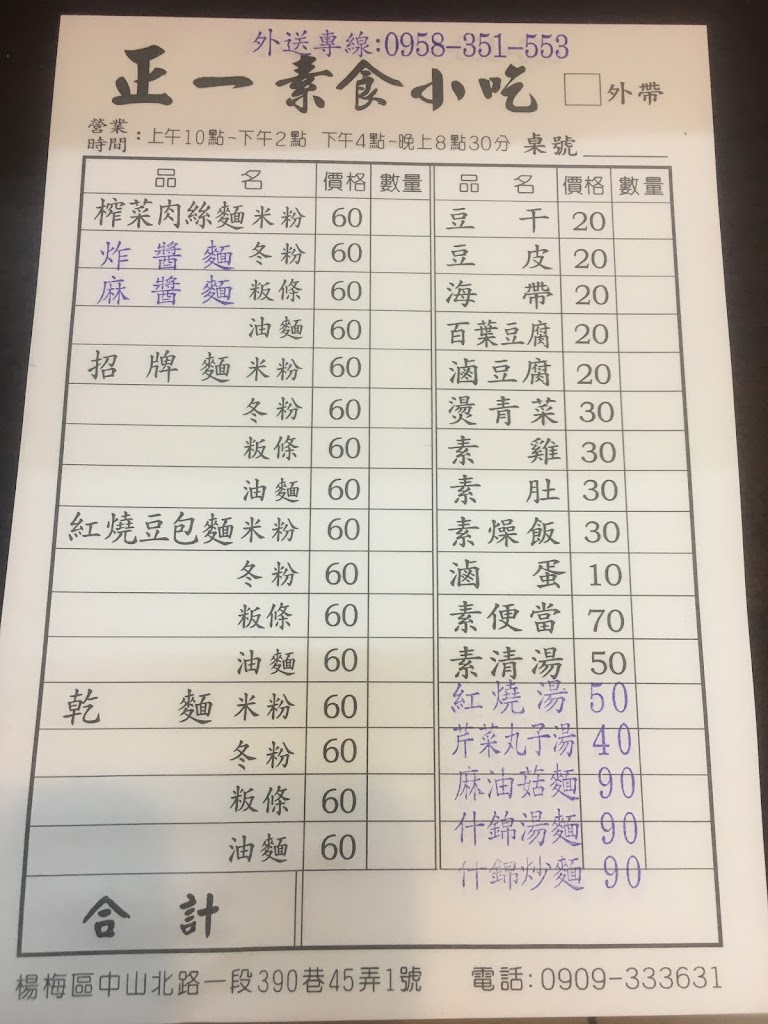 外送專線:0958-351-553
正一素食小吃 外帶
營業時間:上午10點~下午2點 下午4點~晚上8點30分 桌號
品名 價格 數量 品名 價格 數量
榨菜肉絲麵 米粉 60 豆干 20
炸醬麵 冬粉 60 豆皮 20
麻醬麵 粄條 60 海帶 20
油麵 60 百葉豆腐 20
招牌麵 米粉 60 滷豆腐 20
冬粉 60 燙青菜 30
粄條 60 素雞 30
油麵 60 素肚 30
紅燒豆包麵 米粉 60 素燥飯 30
冬粉 60 滷蛋 10
粄條 60 素便當 70
油麵 60 素清湯 50
乾麵 米粉 60 紅燒湯 50
冬粉 60 芹菜丸子湯 40
粄條 60 麻油菇麵 90
油麵 60 什錦湯麵 90
什錦炒麵 90
合計
楊梅區中山北路一段390巷45弄1號 電話:0909-333631